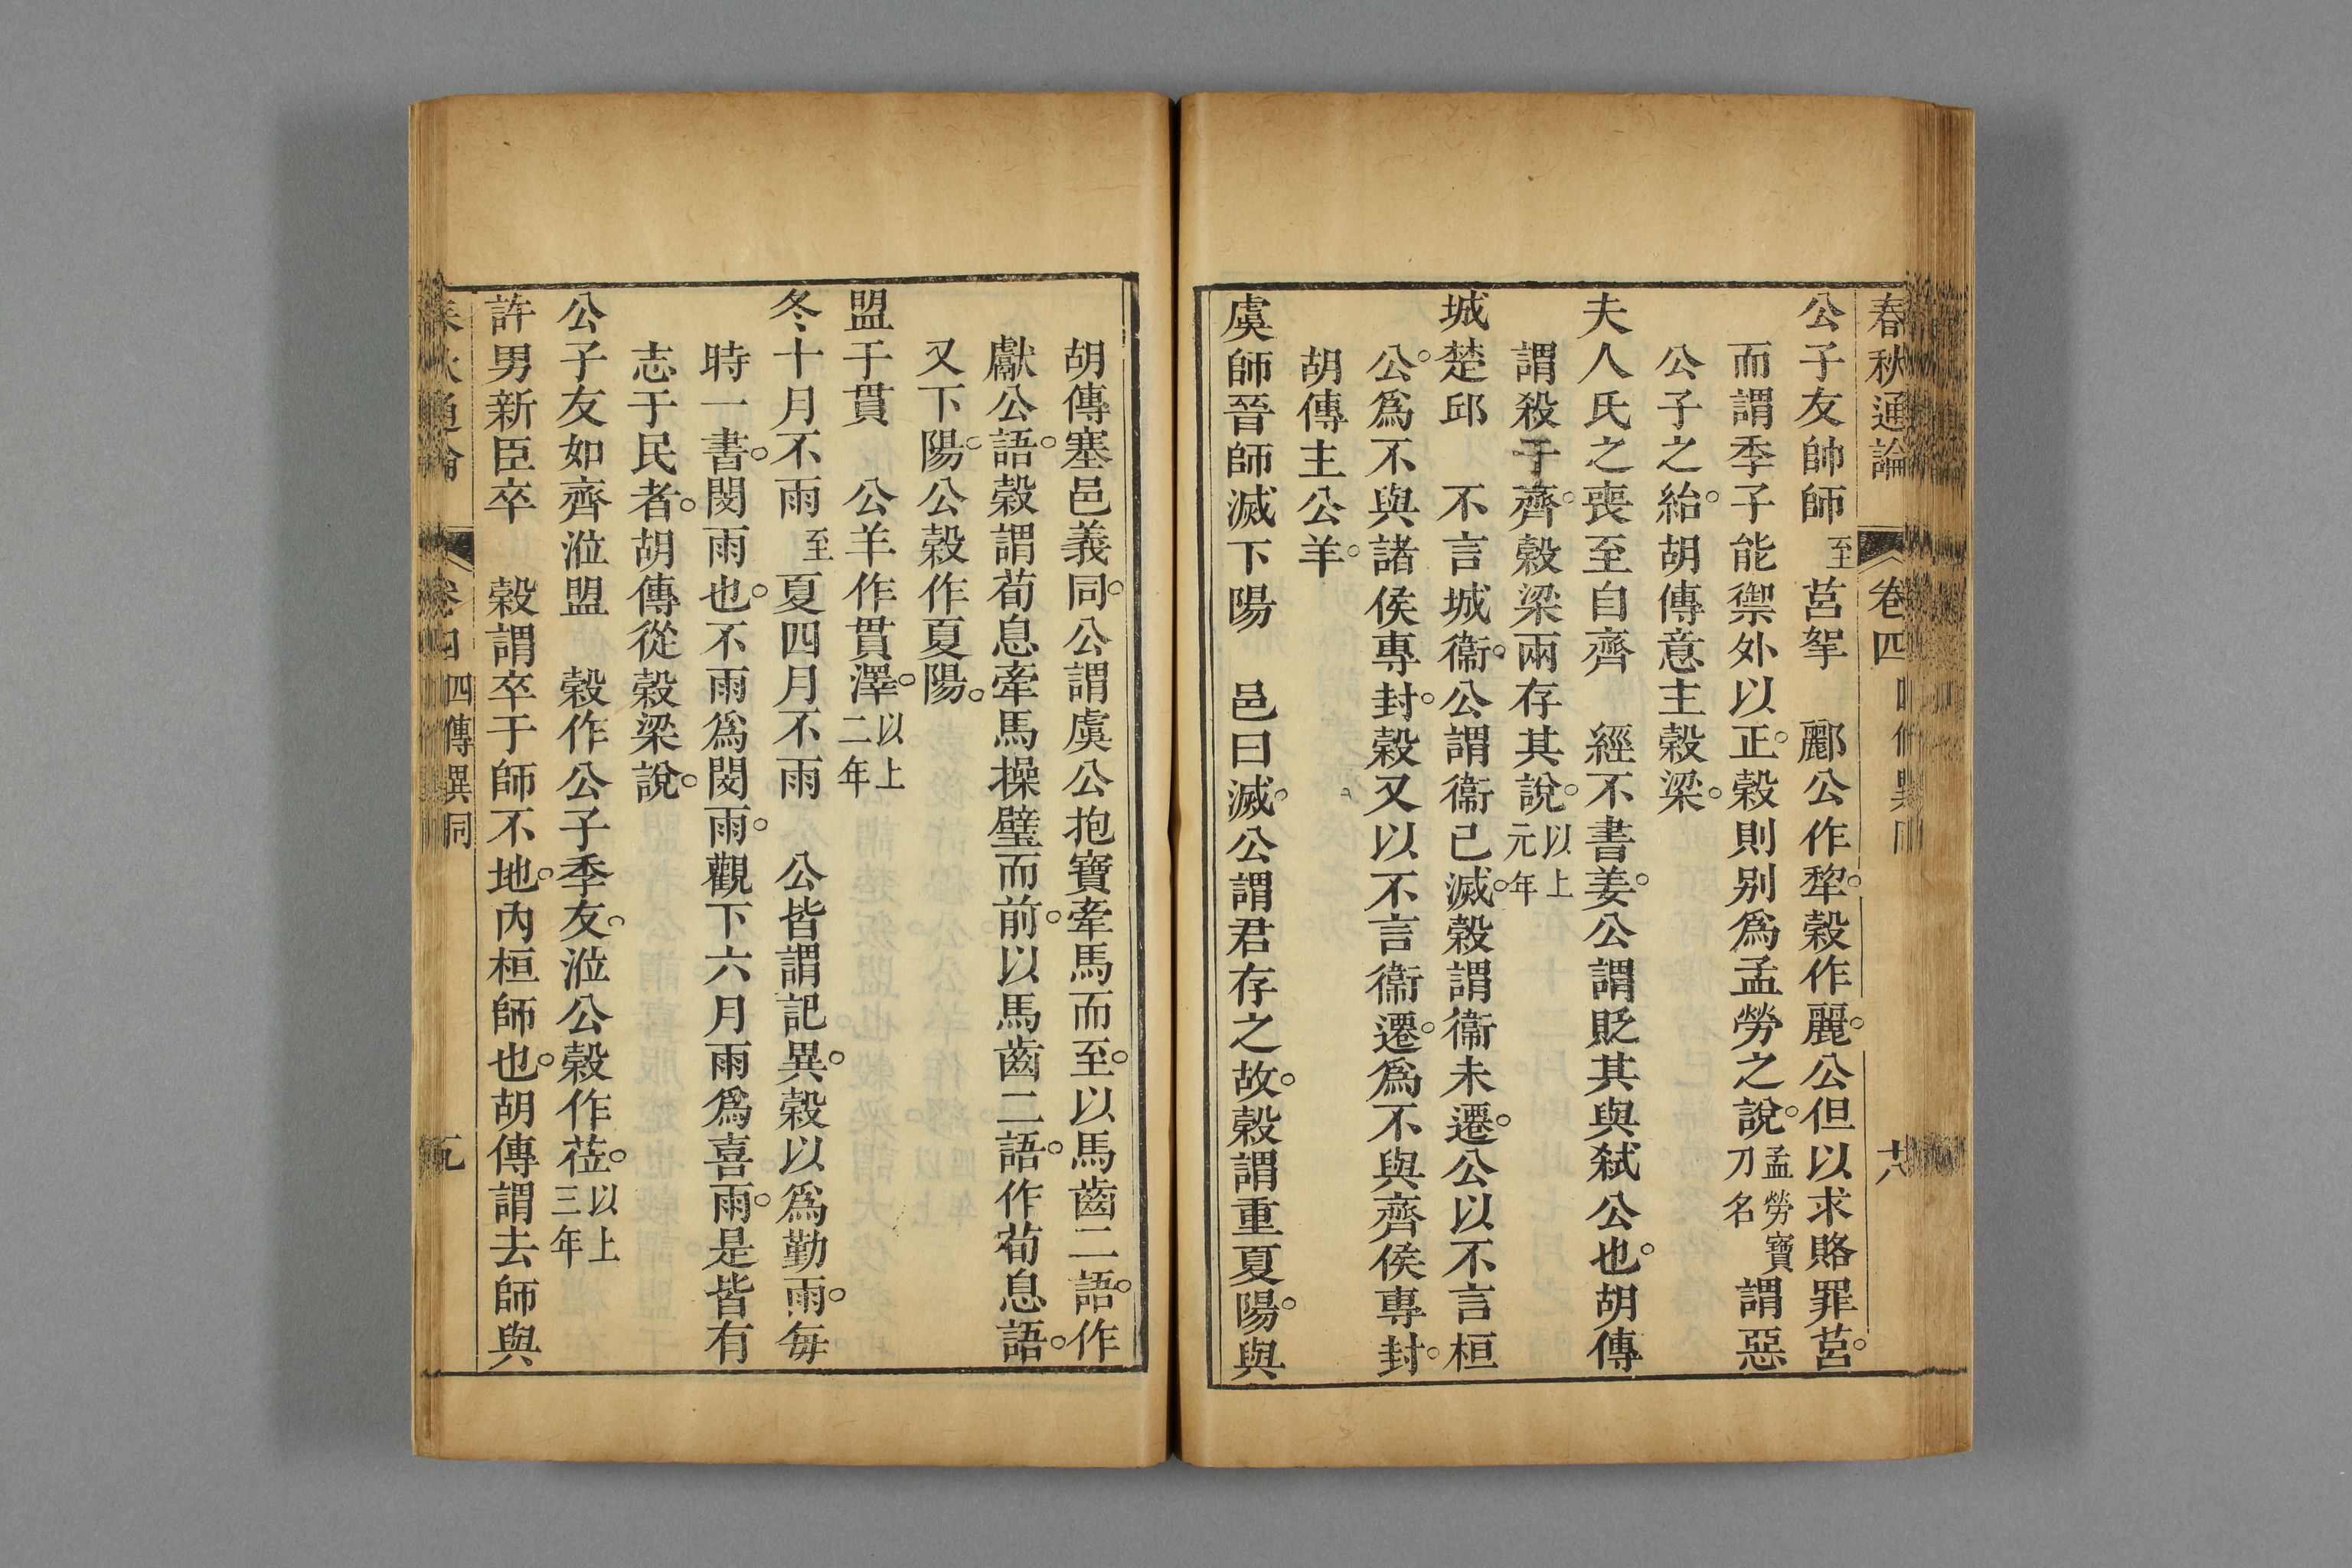 春秋通論 卷四 十八
公子友帥師至莒挐 酈公作犂。穀作麗。公但以求賂罪莒。
而謂季子能禦外以正。穀則别爲孟勞之說。孟勞寶刀名謂惡
公子之紿。胡傳意主穀梁。
夫人氏之喪至自齊 經不書姜。公謂貶其與弑公也。胡傳
謂殺于齊。穀梁兩存其說。以上元年
城楚邱 不言城衞。公謂衞已滅。穀謂衞未遷。公以不言桓
公。爲不與諸侯專封。穀又以不言衞遷。爲不與齊侯專封。
胡傳主公羊。
虞師晉師滅下陽 邑曰滅。公謂君存之故。穀謂重夏陽。與
胡傳塞邑義同。公謂虞公抱寶牽馬而至。以馬齒二語。作
獻公語。穀謂荀息牽馬操璧而前。以馬齒二語。作荀息語。
又下陽。公穀作夏陽。
盟于貫 公羊作貫澤。以上二年
冬十月不雨至夏四月不雨 公皆謂記異。穀以爲勤雨。每
時一書。閔雨也。不雨爲閔雨。觀下六月雨爲喜雨。是皆有
志于民者。胡傳從穀梁說。
公子友如齊涖盟 穀作公子季友。涖公穀作莅。以上三年
許男新臣卒 穀謂卒于師不地。內桓師也。胡傳謂去師與
卷四 四傳異同